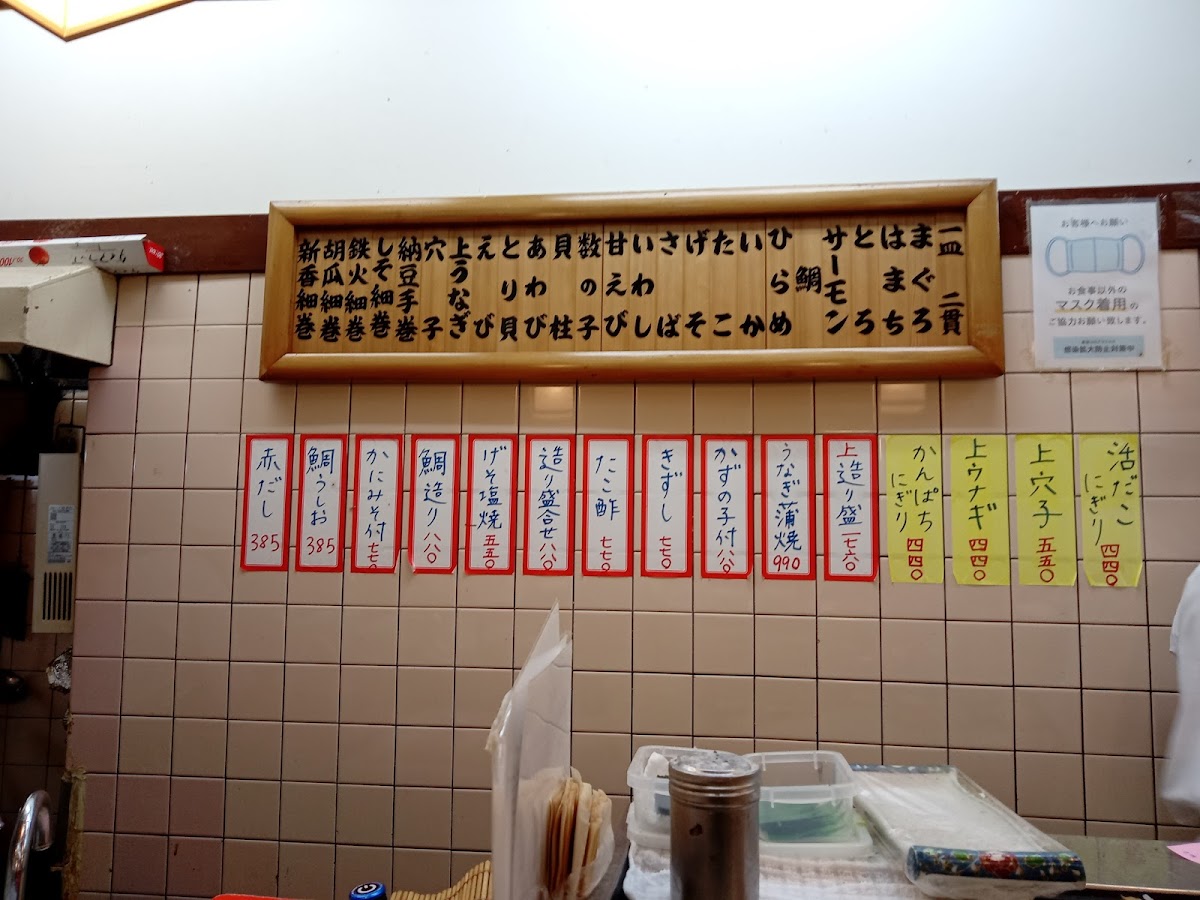 一皿 二貫
まぐろ
はまち
とろ
サーモン
鯛
ひらめ
いか
たこ
げそ
さば
いわし
甘えび
数の子
貝柱
あわび
とり貝
えび
上うなぎ
穴子
納豆手巻
しそ細巻
鉄火細巻
胡瓜細巻
新香細巻
お客様へお願い
お食事以外の
マスク着用の
ご協力お願い致します。
感染拡大防止対策中
活だこ
にぎり
四四〇
上穴子
五五〇
上ウナギ
四四〇
かんぱち
にぎり
四四〇
上造り盛
一七六〇
うなぎ蒲焼
990
かずの子付
八八〇
きずし
七七〇
たこ酢
七七〇
造り盛合せ
八八〇
げそ塩焼
五五〇
鯛造り
八八〇
かにみそ付
七七〇
鯛うしお
385
赤だし
385